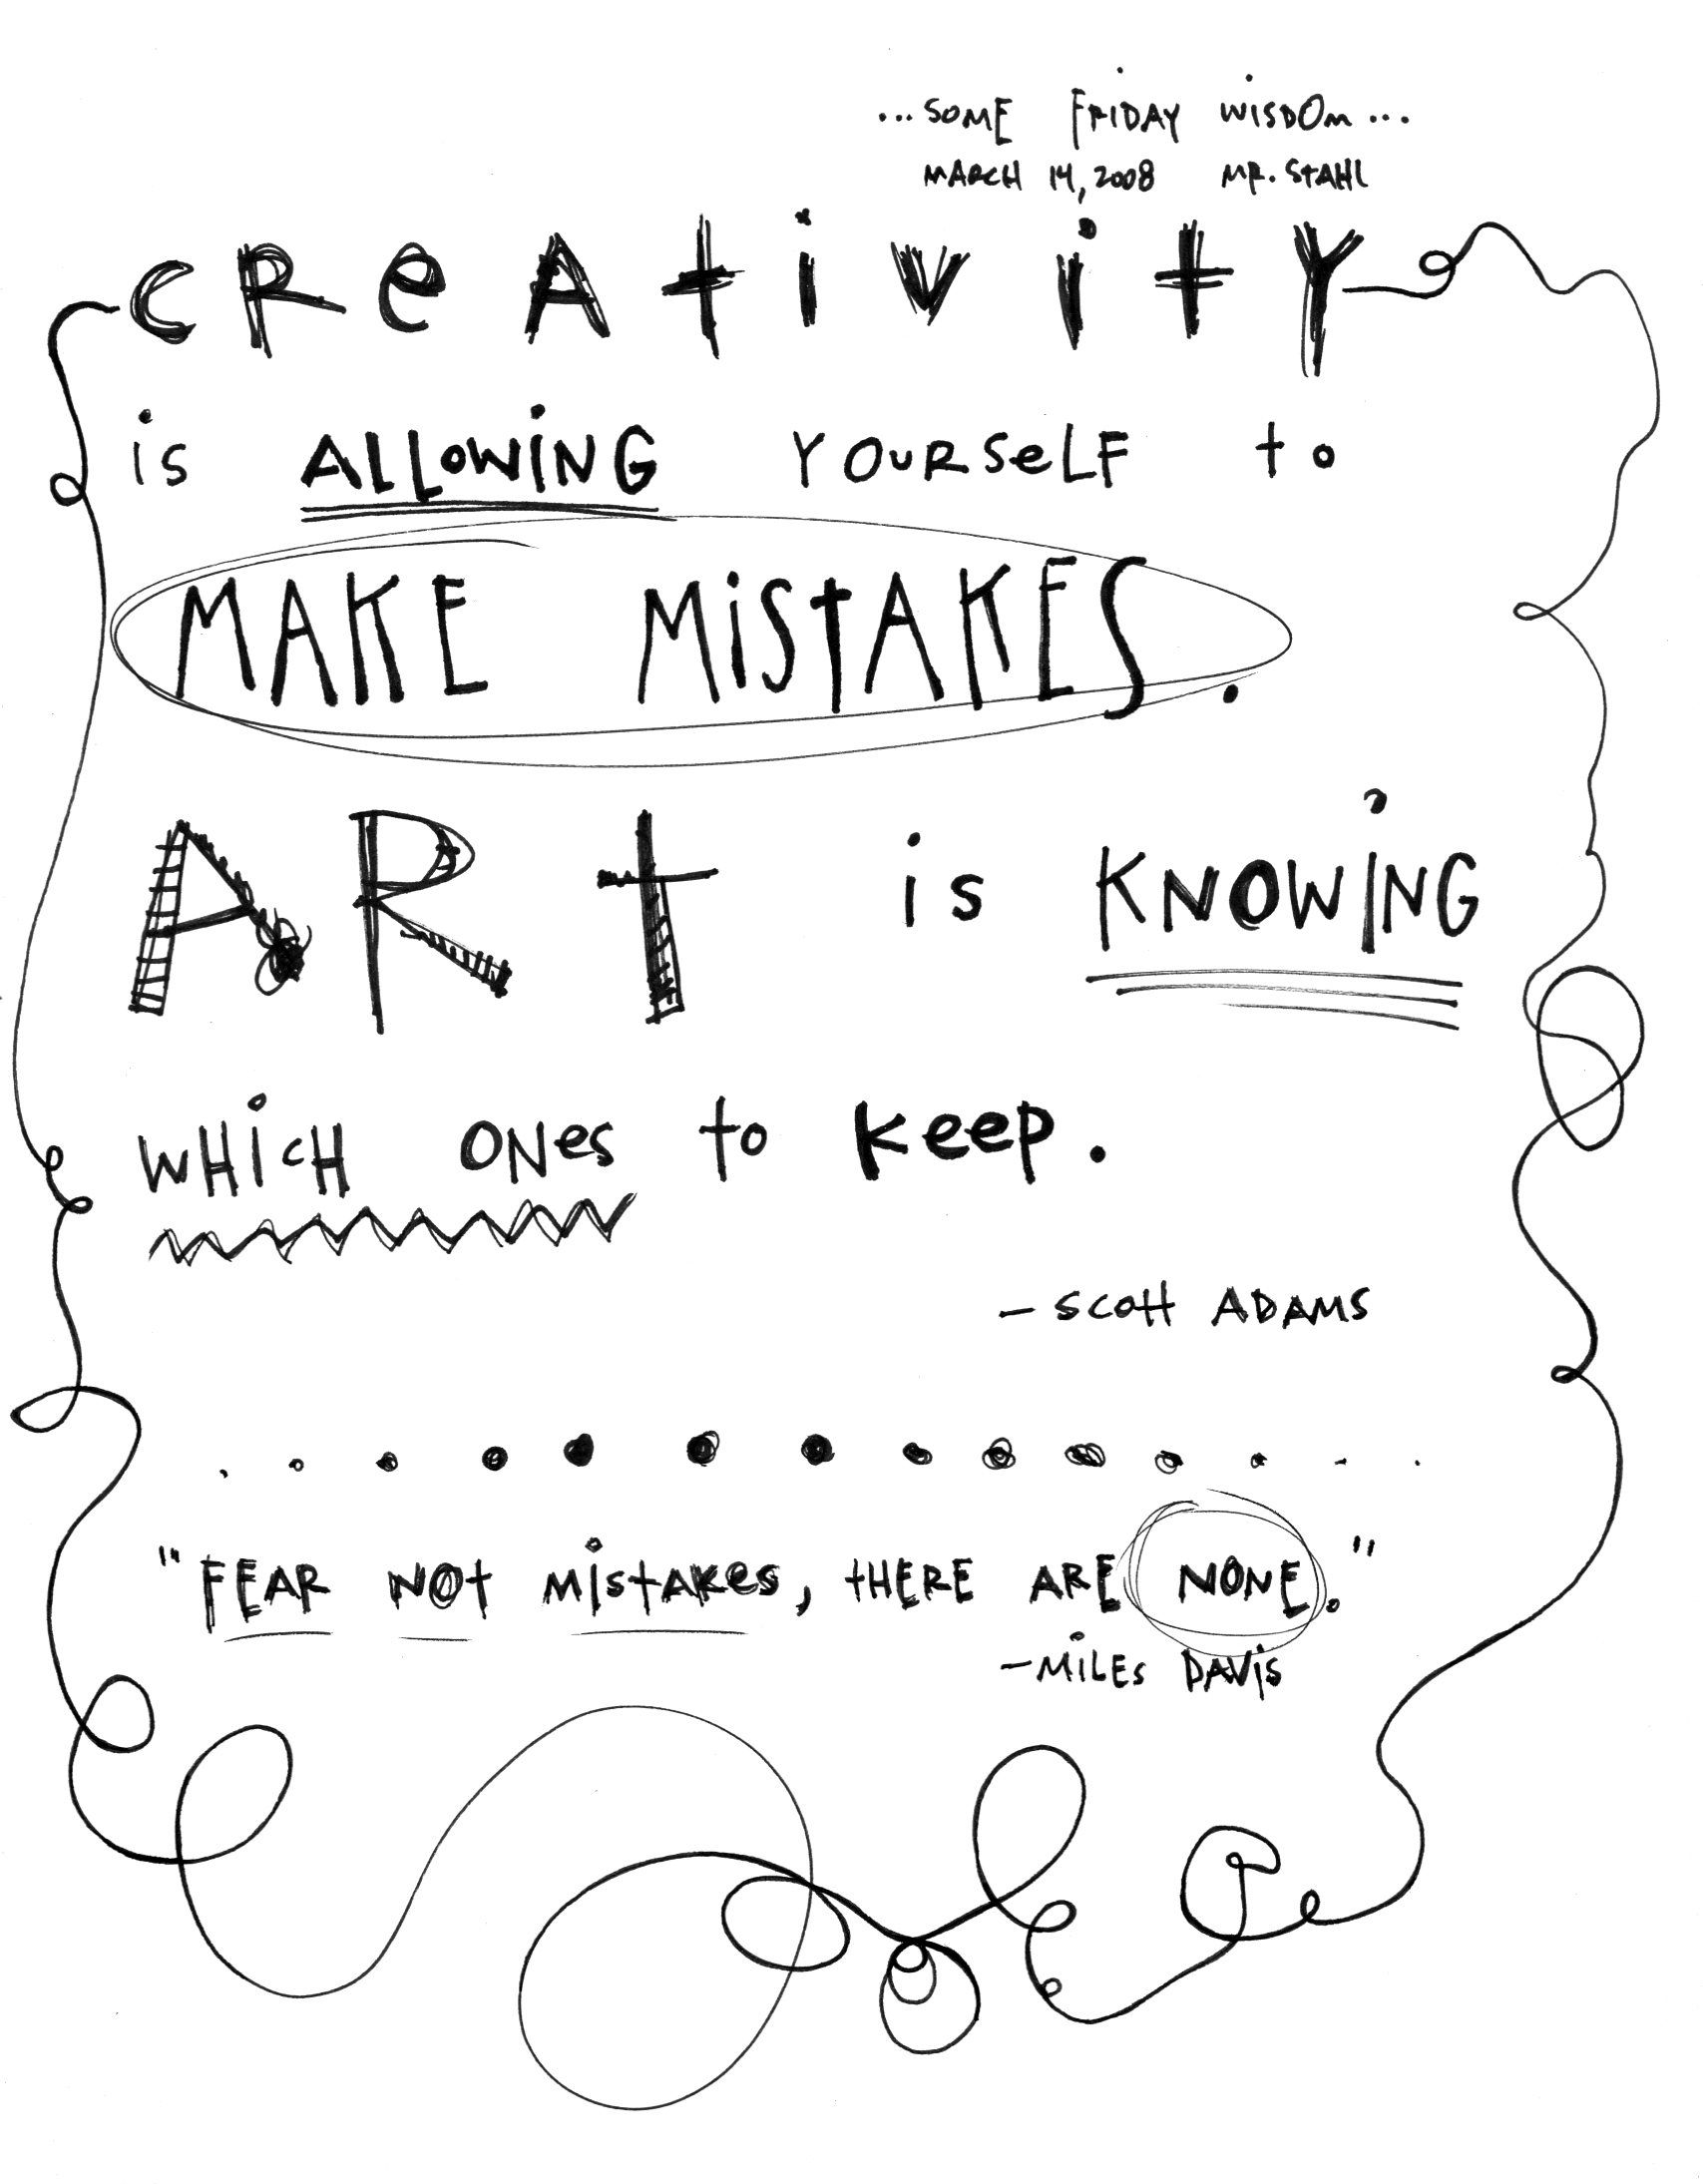 ...SOME FRiDAY WiSDOm...
MARCH 14, 2008 MR. StAHL
cReAtivitY
is ALLOWiNG YOURSeLF to
MAKE MiStAKES.
ARt is KNOWiNG
WHicH ONes to keep.
- Scott ADAMS
"FEAR NOt MistAKes, tHERE ARE NONE."
- MiLES DAViS